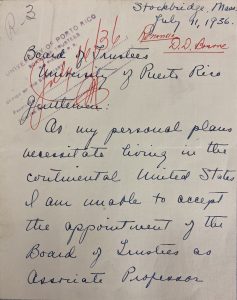 R-3
Stockbridge, Mass.
July 11, 1936.
UNIVERSITY OF PORTO RICO
Board of Trustees
University of Puerto Rico
D.D. Bourne
Gentlemen:
As my personal plans
necessitate living in the
continental United States
I am unable to accept
the appointment of the
Board of Trustees as
Associate Professor